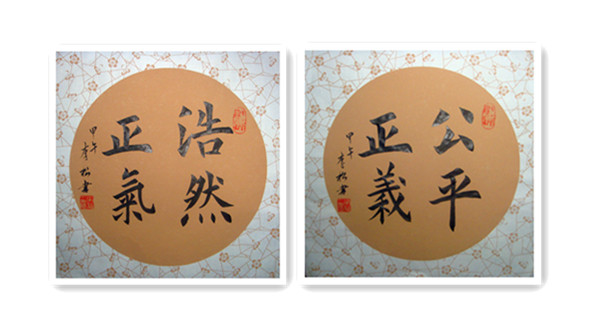 浩然
正氣
甲午
松書
公平
正義
甲午
松書